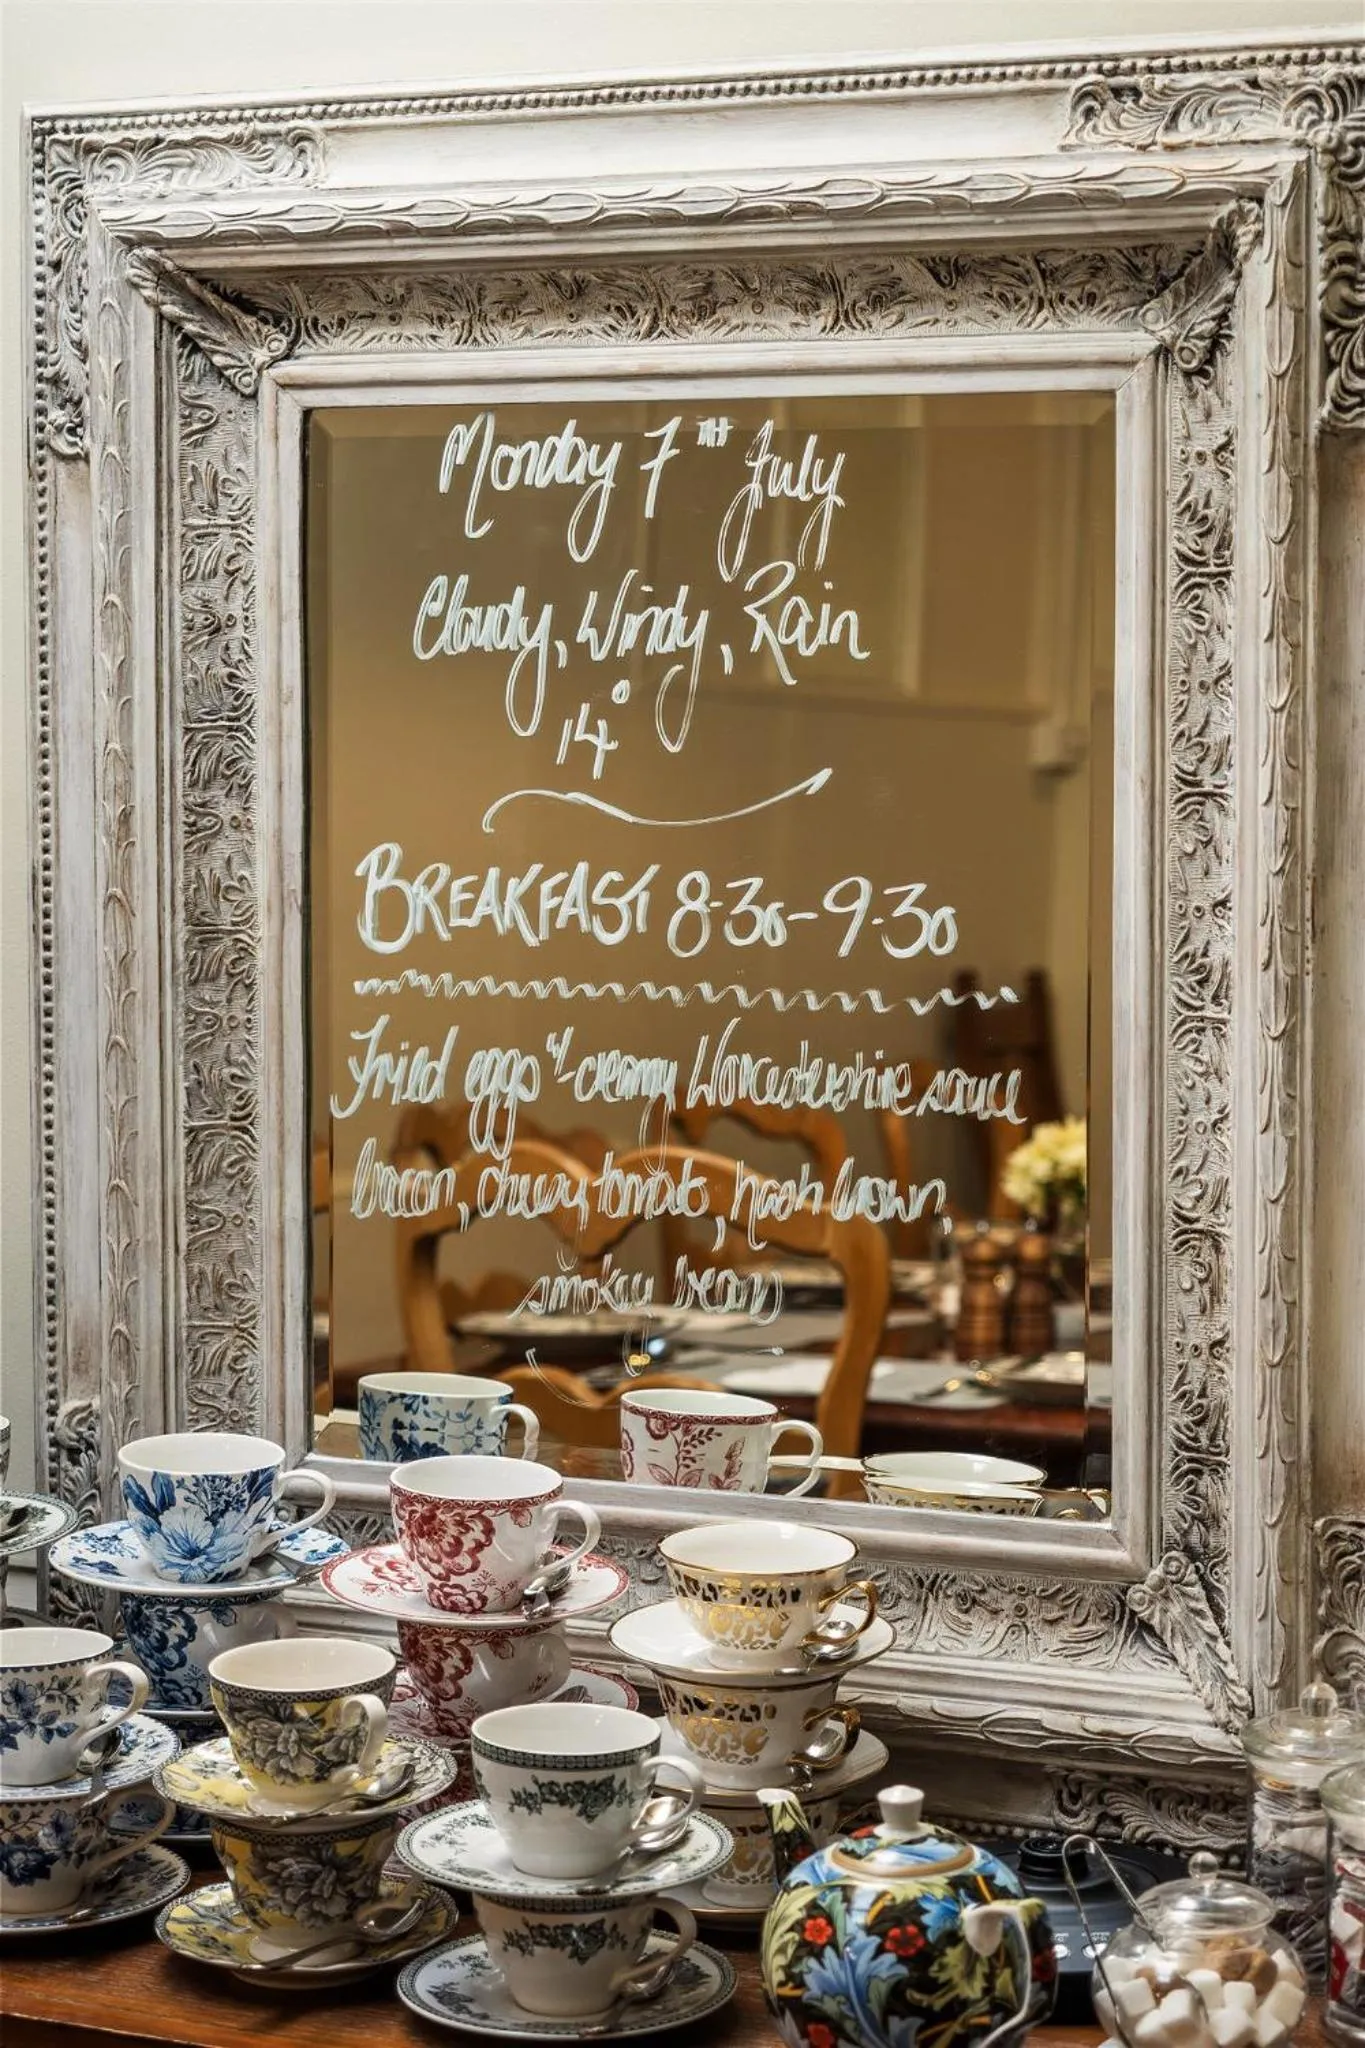 Monday 7TH July
Cloudy, Windy, Rain
14°
BREAKFAST 8.30-9.30
Fried eggs w/ creamy Worcestershire sauce
bacon, cheesy tomato, hash brown,
smokey beans